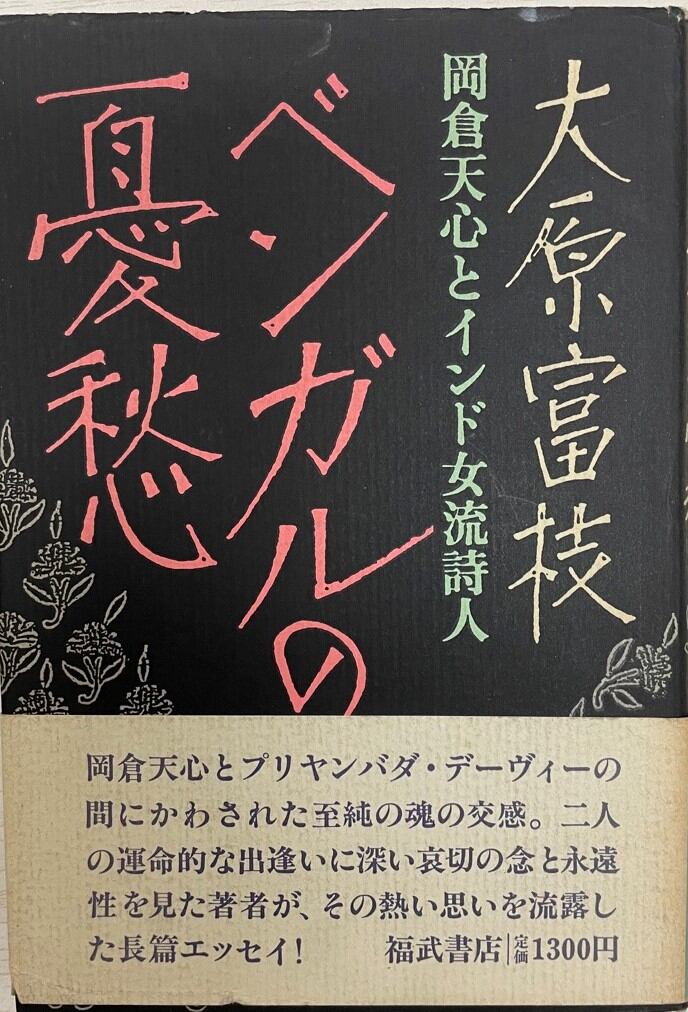 大原富枝
岡倉天心とインド女流詩人
ベンガルの
憂愁
岡倉天心とプリヤンバダ・デーヴィーの
間にかわされた至純の魂の交感。二人
の運命的な出逢いに深い哀切の念と永遠
性を見た著者が、その熱い思いを流露し
た長篇エッセイ! 福武書店 定価1300円